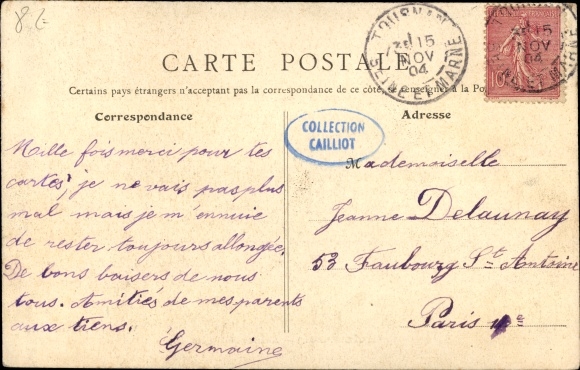 8.-
TOURNAN
3E 15
NOV
04
SEINE ET MARNE
15
NOV
04
10
CARTE POSTALE
Certains pays étrangers n'acceptant pas la correspondance de ce côté, se renseigner à la Po
Correspondance
Adresse
COLLECTION
CAILLIOT
Mille fois merci pour tes
cartes, je ne vais pas plus
mal mais je m'ennuie
de rester toujours allongée.
De bons baisers de nous
tous. Amitiés de mes parents
aux tiens.
Germaine
Mademoiselle
Jeanne Delaunay
53 Faubourg St. Antoine
Paris